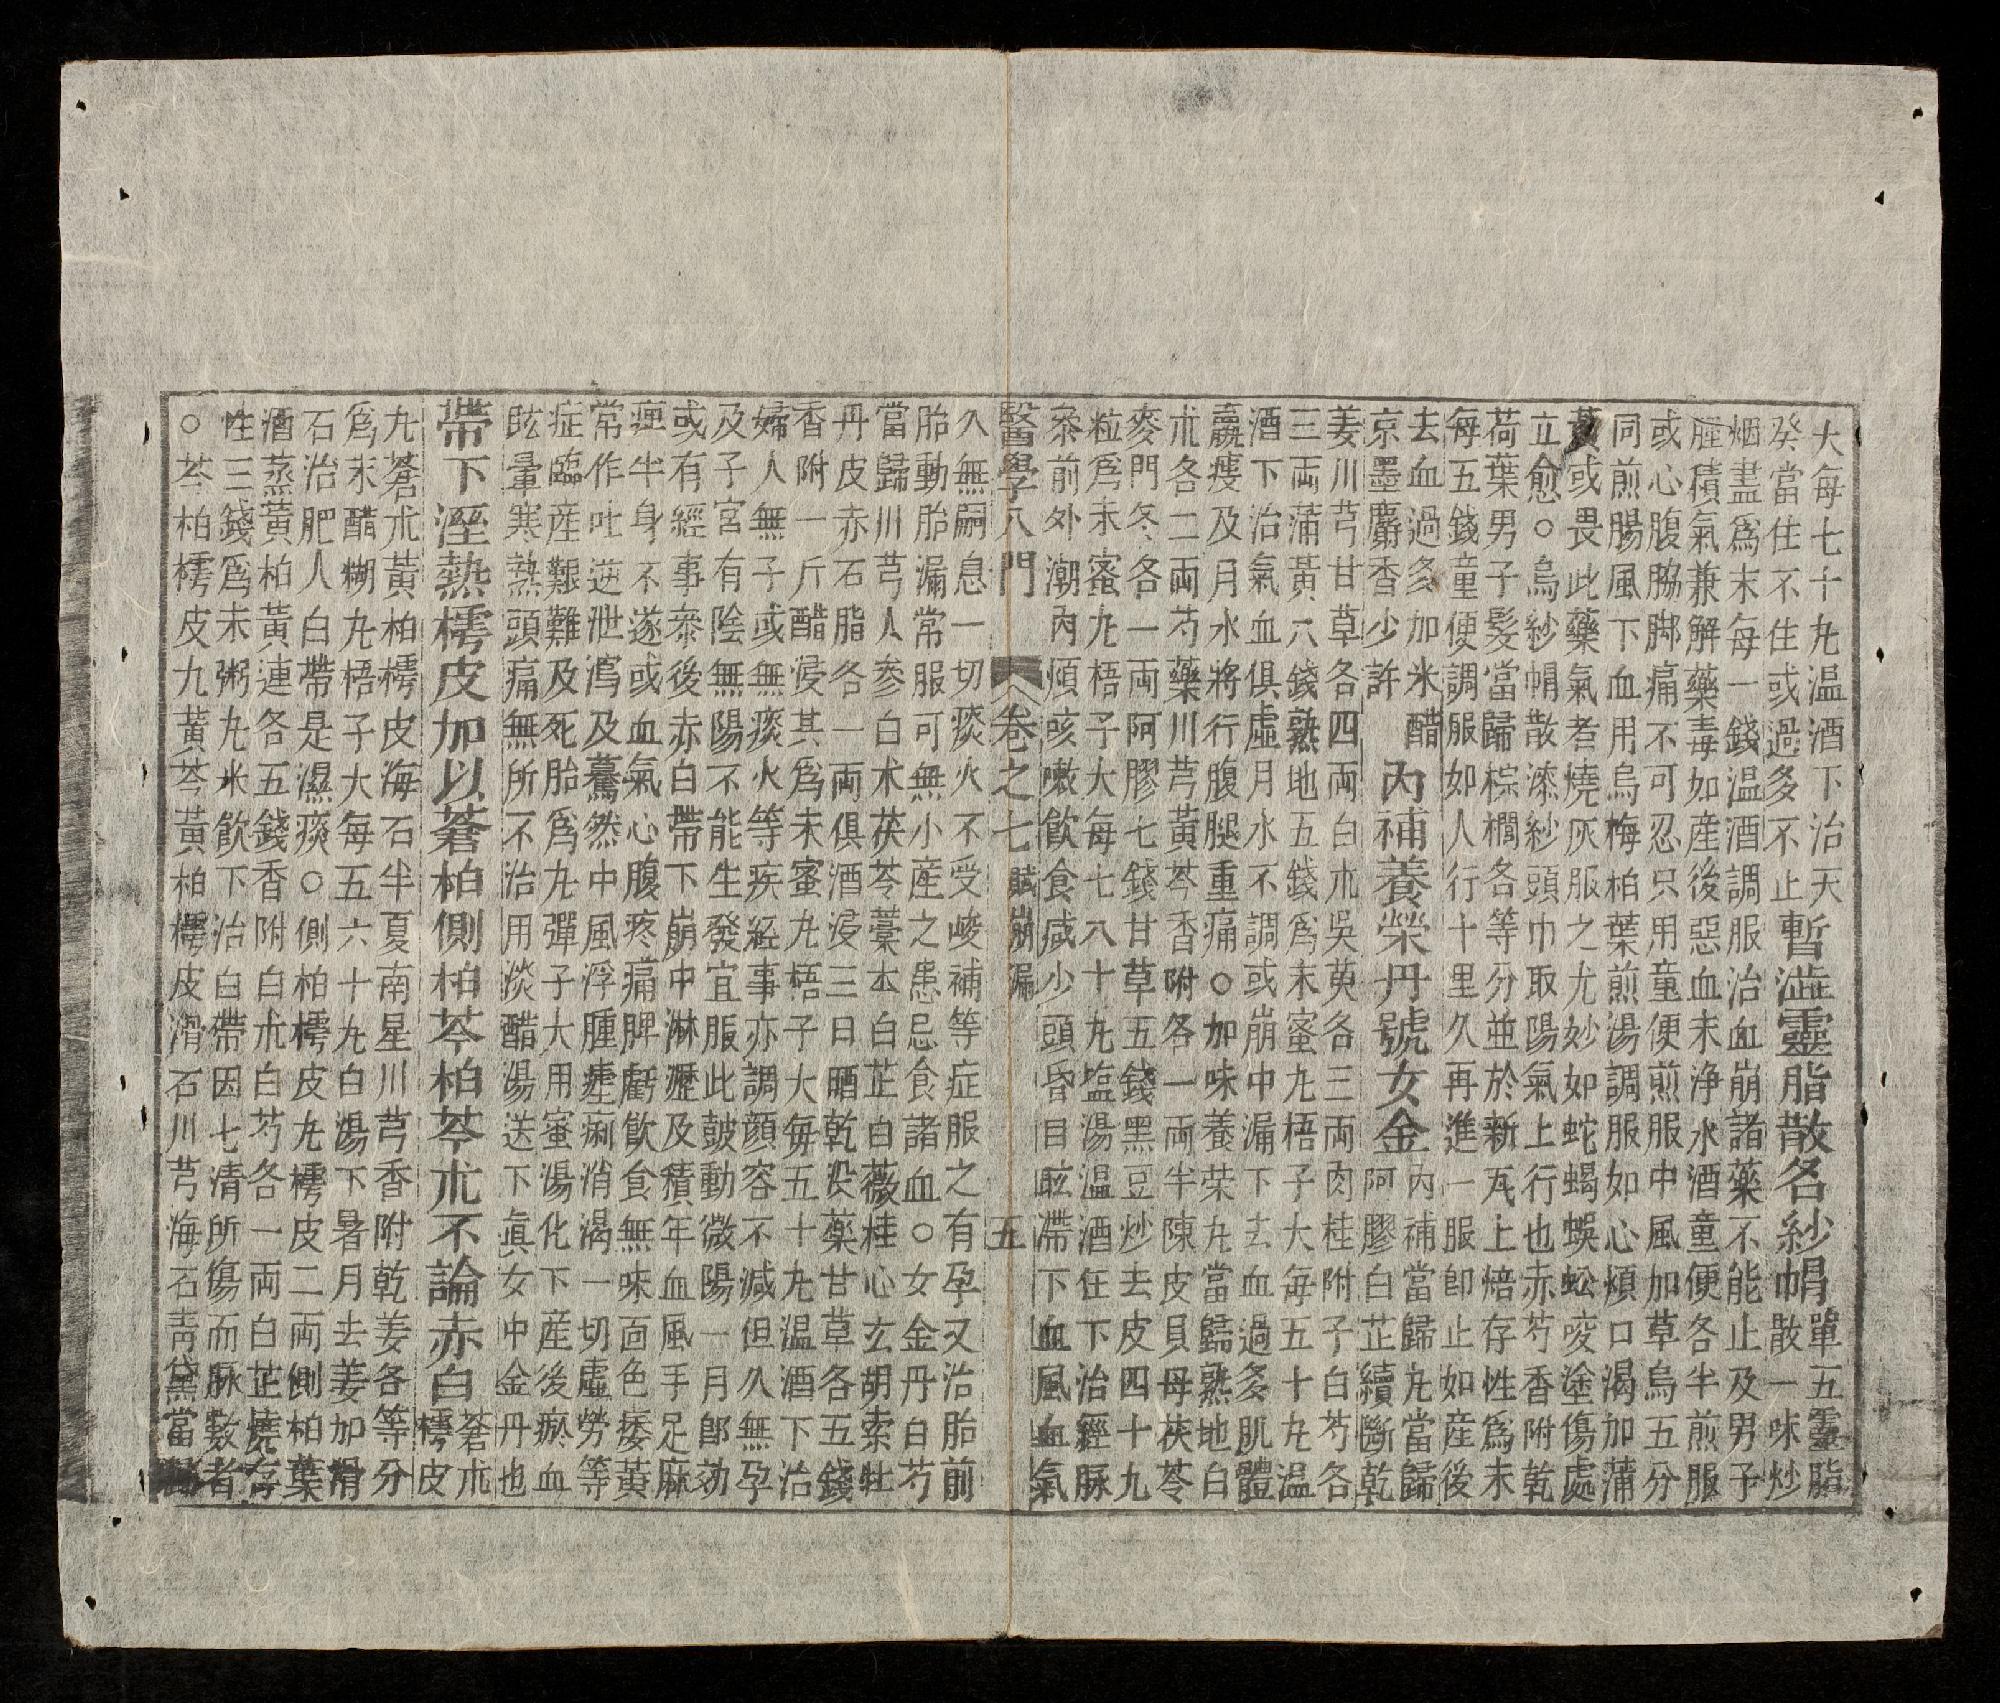 大每七十丸温酒下治天
癸當住不住或過多不止
暫澁靈脂散名紗帽
單五靈脂
散一味炒
烟盡爲末每一錢温酒調服治血崩諸藥不能止及男子
腫積氣兼解藥毒如産後惡血未净水酒童便各半煎服
或心腹脇脚痛不可忍只用童便煎服中風加草烏五分
同煎腸風下血用烏梅柏葉煎湯調服如心煩口渴加蒲
黃或畏此藥氣者燒灰服之尤妙如蛇蝎蜈蚣咬塗傷處
立愈○烏紗帽散漆紗頭巾取陽氣上行也赤芍香附乾
荷葉男子髮當歸棕櫚各等分並於新瓦上焙存性爲末
每五錢童便調服如人行十里久再進一服卽止如産後
去血過多加米醋
京墨麝香少許
內補養榮丹號女金
內補當歸丸當歸
阿膠白芷續斷乾
姜川芎甘草各四両白朮吳萸各三両肉桂附子白芍各
三両蒲黃六錢熟地五錢爲末蜜丸梧子大每五十丸温
酒下治氣血俱虛月水不調或崩中漏下去血過多肌體
羸瘦及月水將行腹腿重痛○加味養荣丸當歸熟地白
朮各二両芍藥川芎黃芩香附各一両半陳皮貝母茯苓
麥門冬各一両阿膠七錢甘草五錢黑豆炒去皮四十九
粒爲末蜜丸梧子大每七八十丸塩湯温酒任下治經脉
叅前外潮內煩咳嗽飲食减少頭昏目眩滯下血風血氣
醫學入門 卷之七 賦崩漏 五
久無嗣息一切痰火不受峻補等症服之有孕又治胎前
胎動胎漏常服可無小産之患忌食諸血○女金丹白芍
當歸川芎人參白朮茯苓藁本白芷白薇桂心玄胡索牡
丹皮赤石脂各一両俱酒浸三日晒乾沒藥甘草各五錢
香附一斤醋浸其爲末蜜丸梧子大每五十丸温酒下治
婦人無子或無痰火等疾經事亦調顔容不減但久無孕
及子宮有陰無陽不能生發宜服此皷動微陽一月卽効
或有經事叅後赤白帶下崩中淋瀝及積年血風手足麻
痺半身不遂或血氣心腹疼痛脾虧飮食無味面色痿黃
常作吐逆泄瀉及驀然中風浮腫瘧痢消渴一切虛勞等
症臨産艱難及死胎爲丸彈子大用蜜湯化下産後瘀血
眩暈寒熱頭痛無所不治用淡醋湯送下眞女中金丹也
帶下溼熱樗皮加以蒼柏側柏芩柏芩朮不論赤白
蒼朮
樗皮
丸蒼朮黃柏樗皮海石半夏南星川芎香附乾姜各等分
爲末醋糊丸梧子大每五六十丸白湯下暑月去姜加滑
石治肥人白帶是濕痰○側柏樗皮丸樗皮二両側柏葉
酒蒸黃柏黃連各五錢香附白朮白芍各一両白芷燒存
性三錢爲末粥丸米飮下治白帶因七淸所傷而脉數者
○芩柏樗皮丸黃芩黃柏樗皮滑石川芎海石靑黛當歸